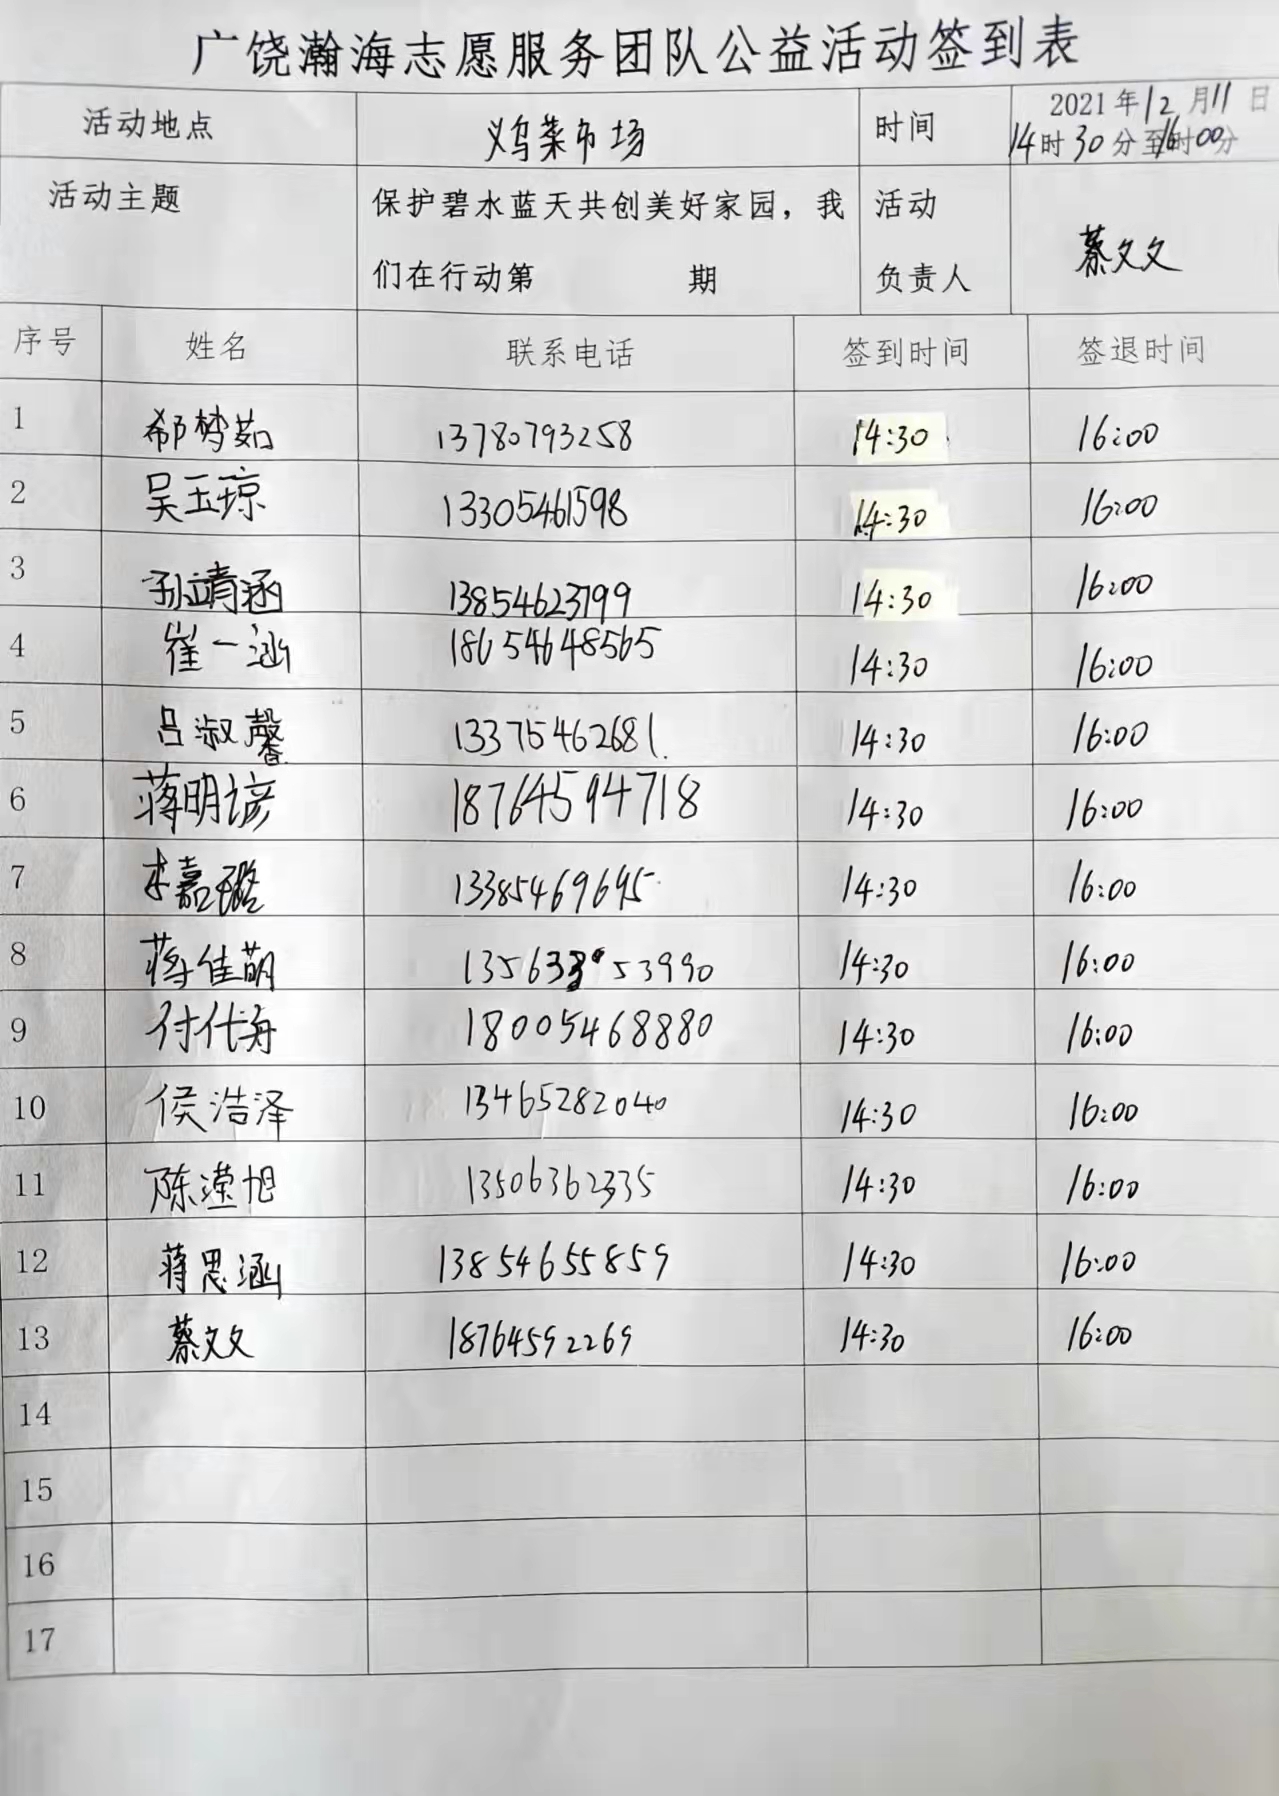 广饶瀚海志愿服务团队公益活动签到表
活动地点 义乌菜市场 时间 2021年12月11日
14时30分至16时00分
活动主题 保护碧水蓝天共创美好家园，我 活动
们在行动第 期 负责人 蔡文文
序号 姓名 联系电话 签到时间 签退时间
1 郗梦茹 13780793258 14:30 16:00
2 吴玉琼 13305461598 14:30 16:00
3 孙靖涵 13854623799 14:30 16:00
4 崔一涵 18654648565 14:30 16:00
5 吕淑馨 13375462681 14:30 16:00
6 蒋明谚 18764594718 14:30 16:00
7 李嘉璐 13385469695 14:30 16:00
8 蒋佳萌 14:30 16:00
9 付代海 18005468880 14:30 16:00
10 侯浩泽 13465282040 14:30 16:00
11 陈滢旭 13506362335 14:30 16:00
12 蒋思涵 13854655859 14:30 16:00
13 蔡文文 18764592269 14:30 16:00
14
15
16
17